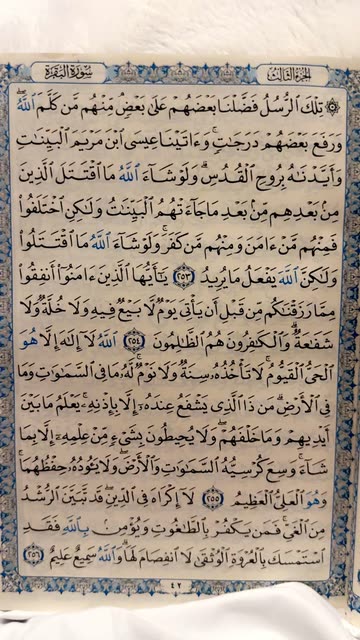 الجزء الثالث
سورة البقرة
تِلْكَ الرُّسُلُ فَضَّلْنَا بَعْضَهُمْ عَلَىٰ بَعْضٍ مِّنْهُم مَّن كَلَّمَ اللَّهُ
وَرَفَعَ بَعْضَهُمْ دَرَجَاتٍ وَءَاتَيْنَا عِيسَى ابْنَ مَرْيَمَ الْبَيِّنَاتِ
وَأَيَّدْنَاهُ بِرُوحِ الْقُدُسِ وَلَوْ شَاءَ اللَّهُ مَا اقْتَتَلَ الَّذِينَ
مِنۢ بَعْدِهِم مِّنۢ بَعْدِ مَا جَاءَتْهُمُ الْبَيِّنَاتُ وَلَٰكِنِ اخْتَلَفُوا
فَمِنْهُم مَّنْ ءَامَنَ وَمِنْهُم مَّن كَفَرَ وَلَوْ شَاءَ اللَّهُ مَا اقْتَتَلُوا
وَلَٰكِنَّ اللَّهَ يَفْعَلُ مَا يُرِيدُ ٢٥٣ يَٰأَيُّهَا الَّذِينَ ءَامَنُوا أَنفِقُوا
مِمَّا رَزَقْنَاكُم مِّن قَبْلِ أَن يَأْتِيَ يَوْمٌ لَّا بَيْعٌ فِيهِ وَلَا خُلَّةٌ وَلَا
شَفَاعَةٌ وَالْكَافِرُونَ هُمُ الظَّالِمُونَ ٢٥٤ اللَّهُ لَا إِلَٰهَ إِلَّا هُوَ
الْحَيُّ الْقَيُّومُ لَا تَأْخُذُهُ سِنَةٌ وَلَا نَوْمٌ لَّهُ مَا فِي السَّمَٰوَٰتِ وَمَا
فِي الْأَرْضِ مَن ذَا الَّذِي يَشْفَعُ عِندَهُ إِلَّا بِإِذْنِهِ يَعْلَمُ مَا بَيْنَ
أَيْدِيهِمْ وَمَا خَلْفَهُمْ وَلَا يُحِيطُونَ بِشَيْءٍ مِّنْ عِلْمِهِ إِلَّا بِمَا
شَاءَ وَسِعَ كُرْسِيُّهُ السَّمَٰوَٰتِ وَالْأَرْضَ وَلَا يَـُٔودُهُ حِفْظُهُمَا
وَهُوَ الْعَلِيُّ الْعَظِيمُ ٢٥٥ لَا إِكْرَاهَ فِي الدِّينِ قَد تَّبَيَّنَ الرُّشْدُ
مِنَ الْغَيِّ فَمَن يَكْفُرْ بِالطَّاغُوتِ وَيُؤْمِنۢ بِاللَّهِ فَقَدِ
اسْتَمْسَكَ بِالْعُرْوَةِ الْوُثْقَىٰ لَا انفِصَامَ لَهَا وَاللَّهُ سَمِيعٌ عَلِيمٌ ٢٥٦
٤٢